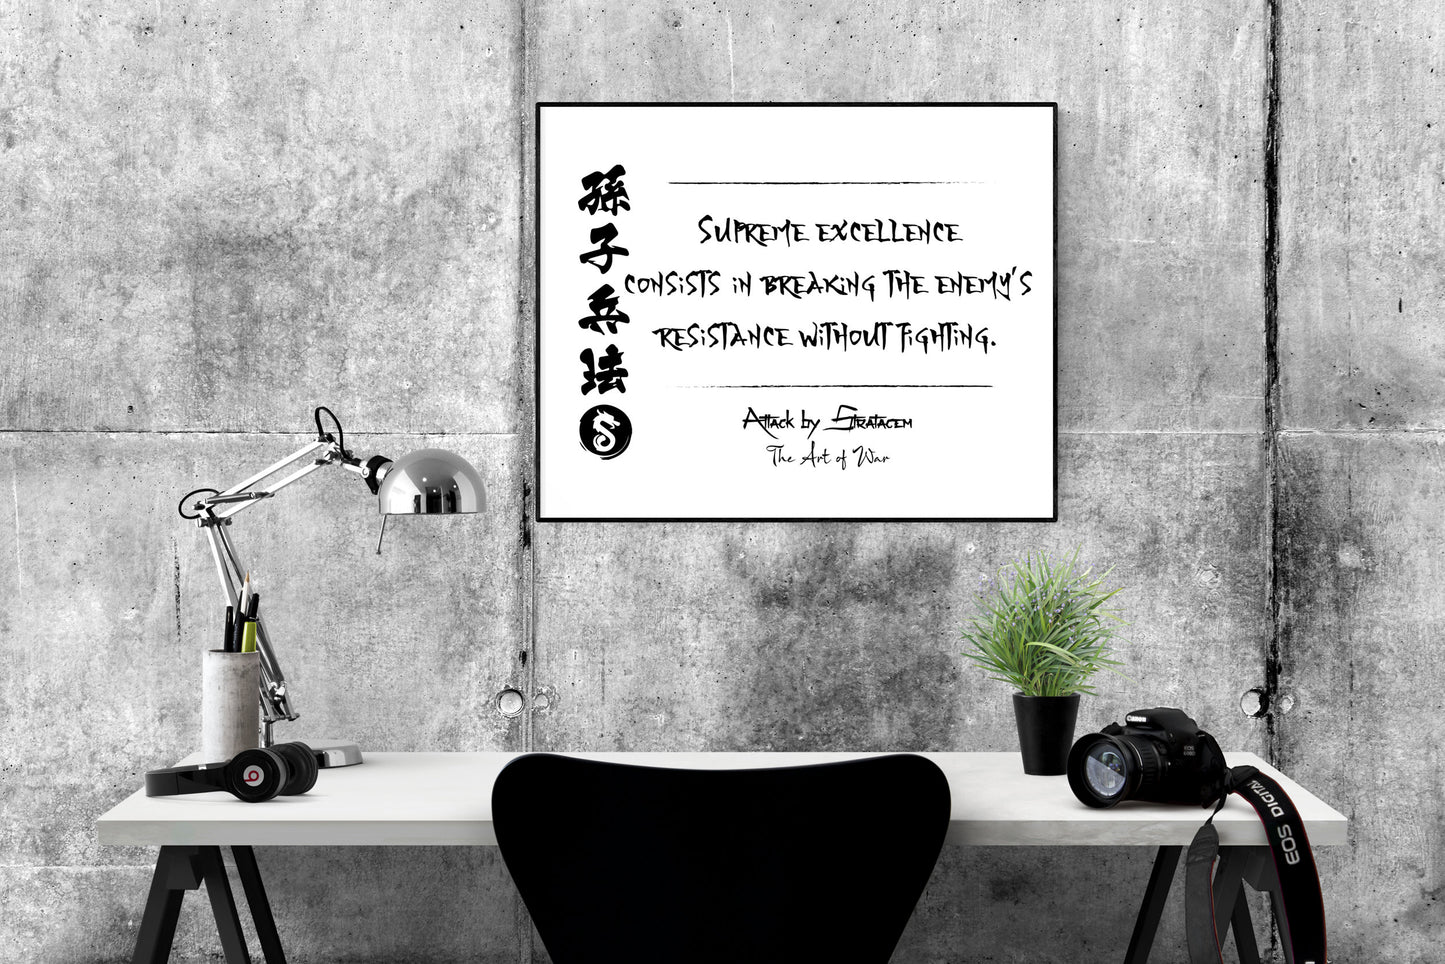 孫子兵法
SUPREME EXCELLENCE
CONSISTS IN BREAKING THE ENEMY'S
RESISTANCE WITHOUT FIGHTING.
Attack by Stratagem
The Art of War
Canon
EOS
EOS DIGITAL